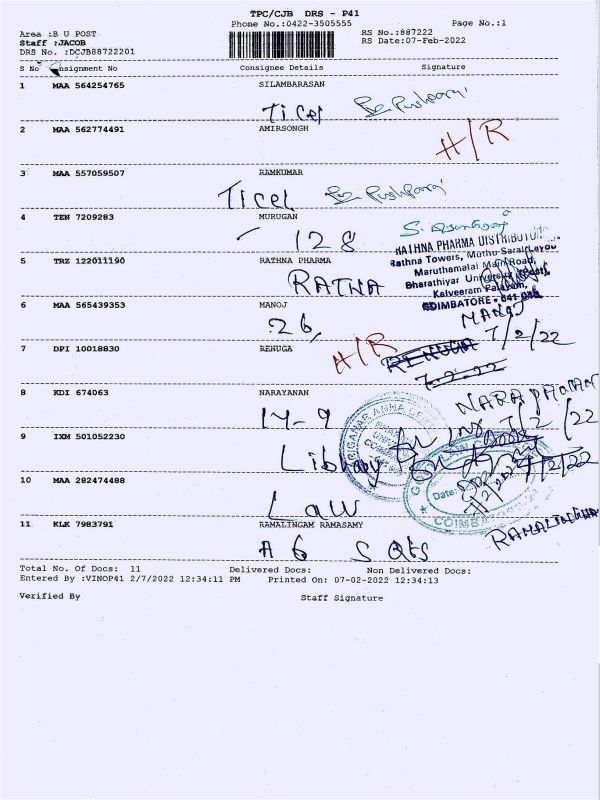 TPC/CJB DRS - P41
Phone No.:0422-3505555
Page No.:1
Area :B U POST
Staff :JACOB
DRS No. :DCJB88722201
RS No.:887222
RS Date:07-Feb-2022
S No Consignment No Consignee Details Signature
1 MAA 564254765 SILAMBARASAN
Ticel
2 MAA 562774491 AMIRSONGH
H/R
3 MAA 557059507 RAMKUMAR
Ticel
4 TEN 7209283 MURUGAN
128
5 TRZ 122011190 RATHNA PHARMA
RATNA
RATHNA PHARMA DISTRIBUTO
Rathna Towers, Muthu Saralayou
Maruthamalai Main Road,
Bharathiyar University (Post),
Kalveeram Palayam,
COIMBATORE - 641
6 MAA 565439353 MANOJ
26
MANOJ
7/2/22
7 DPI 10018830 RENUGA
H/R
RENUGA
7-2-22
8 KDI 674063 NARAYANAN
14-9
7/2/22
9 IXM 501052230
Library
7/2/22
10 MAA 282474488
Law
Date:
COIMBA
11 KLK 7983791 RAMALINGAM RAMASAMY
A 6 S Qts
Total No. Of Docs: 11 Delivered Docs: Non Delivered Docs:
Entered By :VINOP41 2/7/2022 12:34:11 PM Printed On: 07-02-2022 12:34:13
Verified By Staff Signature